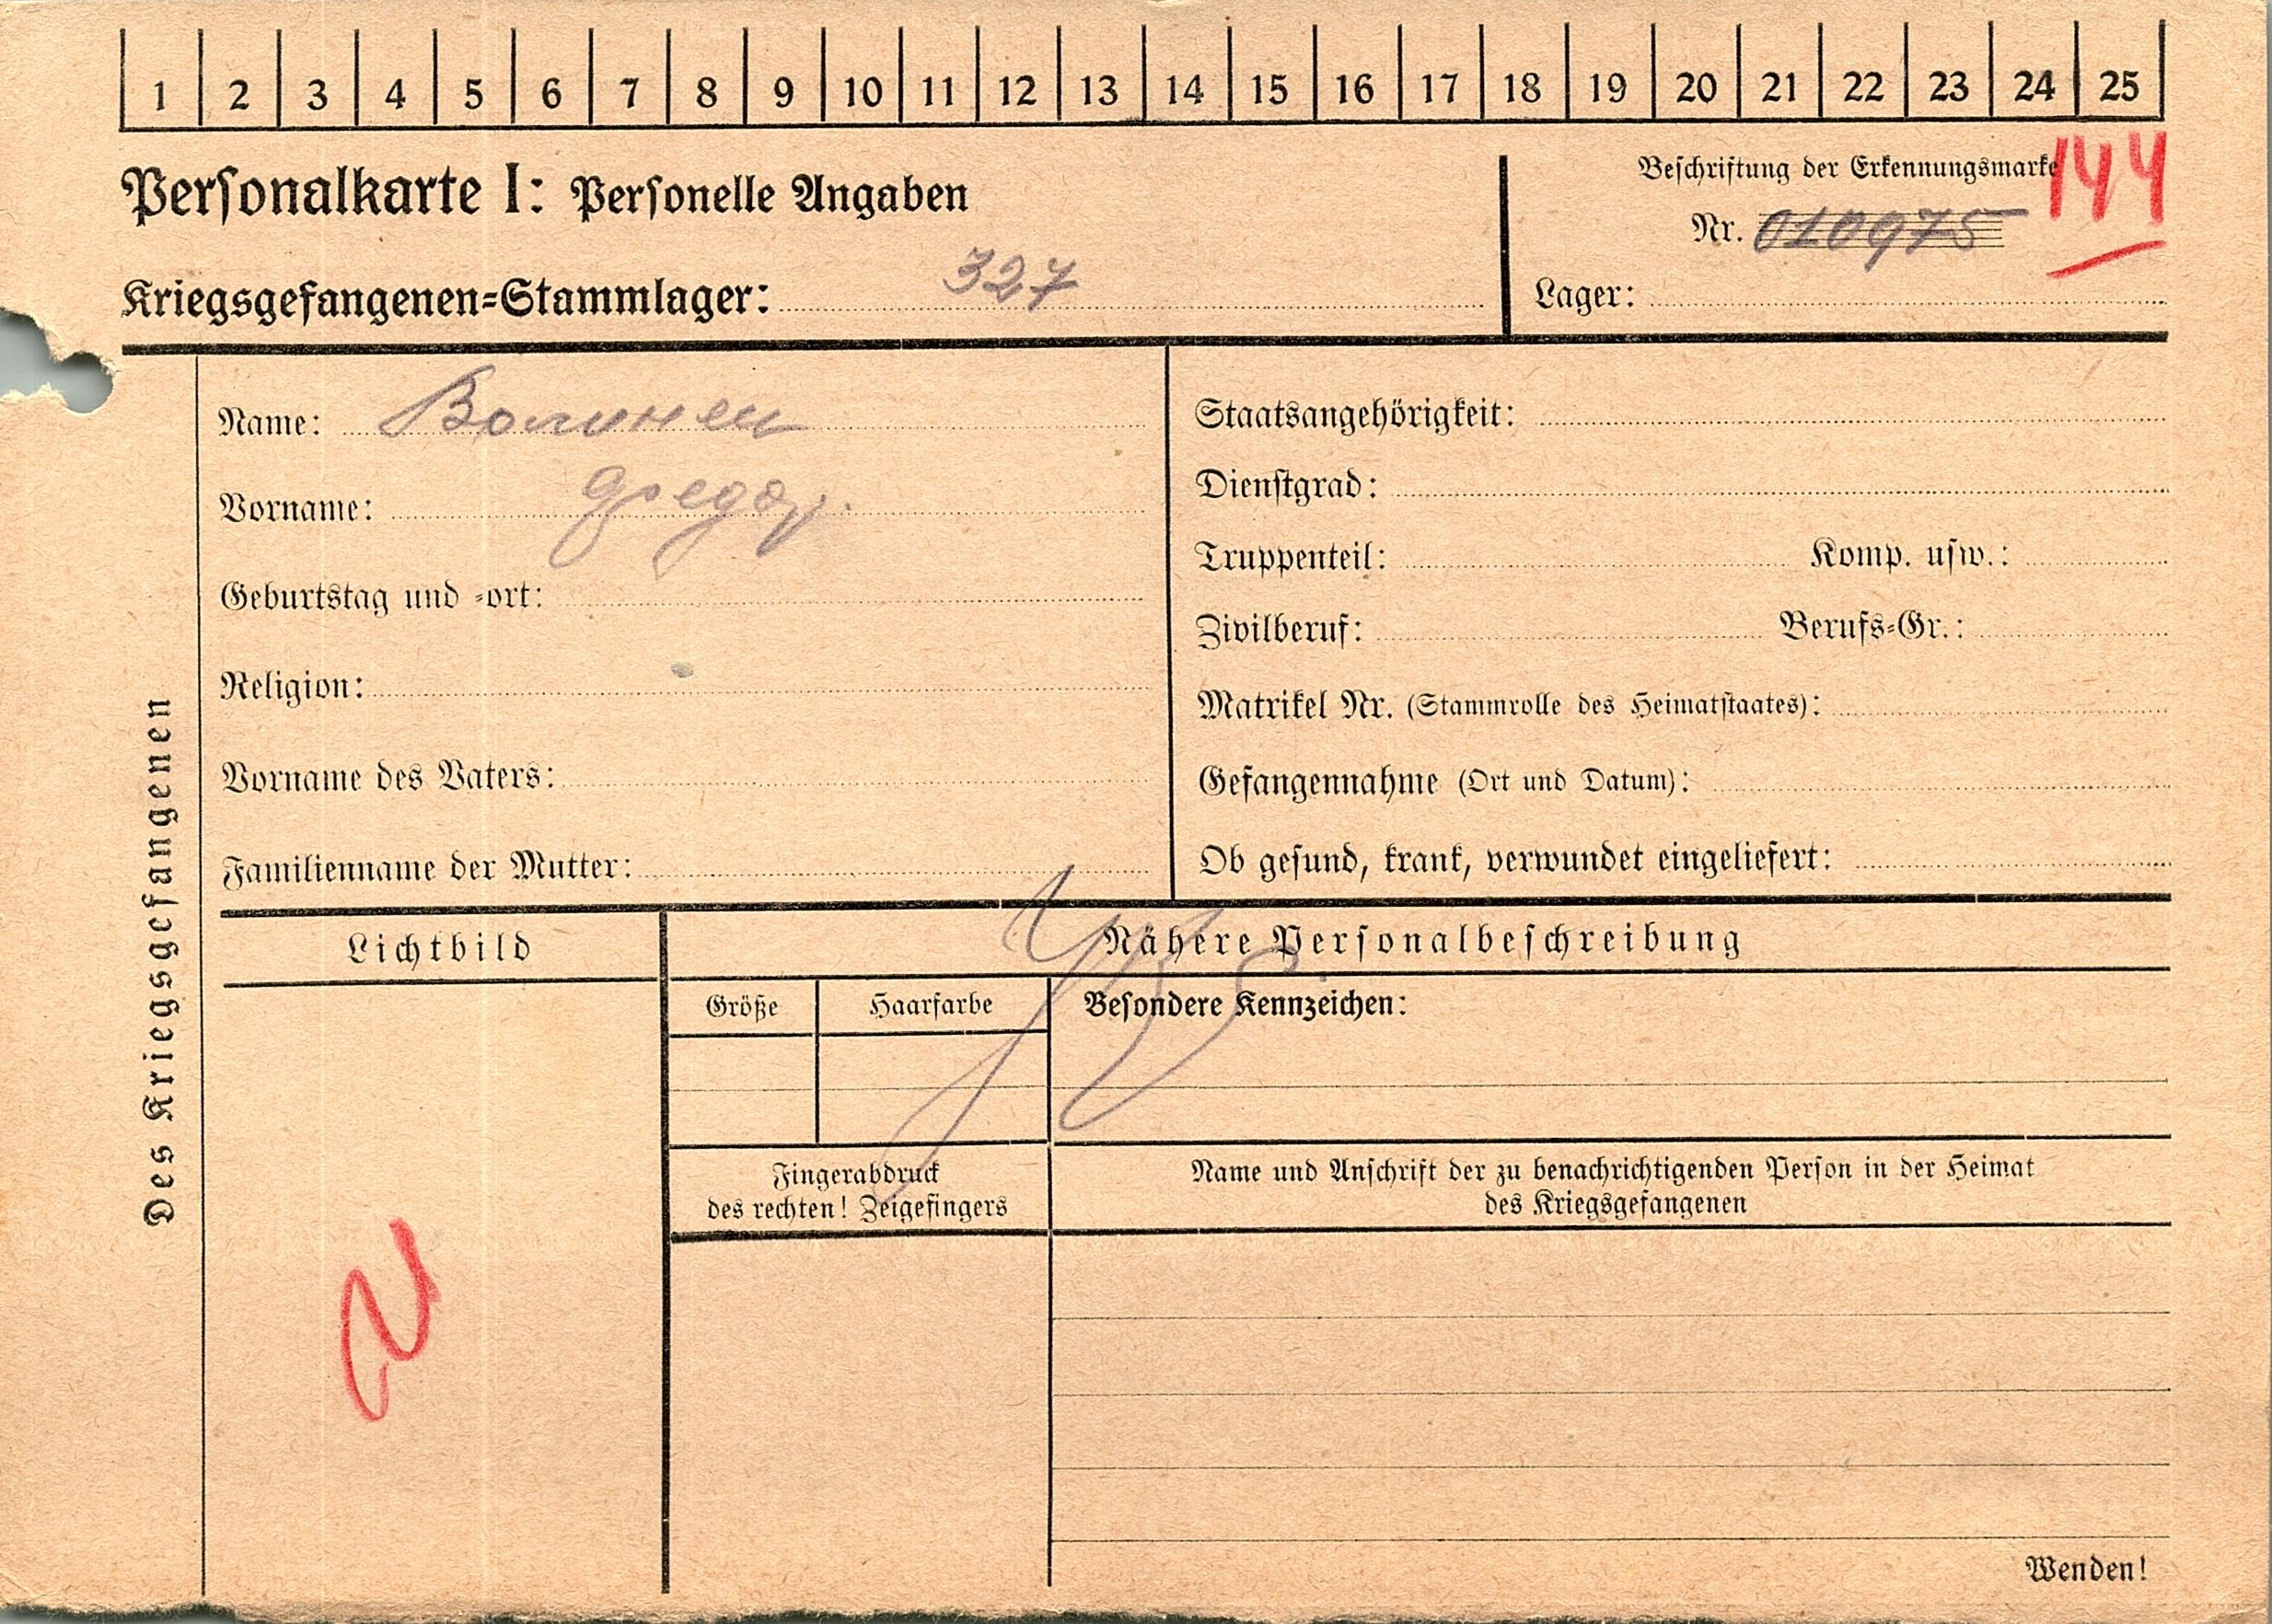 1 2 3 4 5 6 7 8 9 10 11 12 13 14 15 16 17 18 19 20 21 22 23 24 25
Personalkarte I: Personelle Angaben
Kriegsgefangenen=Stammlager: 327
Beschriftung der Erkennungsmarke
144
Nr. 010975
Lager:
Des Kriegsgefangenen
Name: Волинец
Vorname: Федор.
Geburtstag und =ort:
Religion:
Vorname des Vaters:
Familienname der Mutter:
Staatsangehörigkeit:
Dienstgrad:
Truppenteil: Komp. usw.:
Zivilberuf: Berufs=Gr.:
Matrikel Nr. (Stammrolle des Heimatstaates):
Gefangennahme (Ort und Datum):
Ob gesund, krank, verwundet eingeliefert:
Lichtbild
Nähere Personalbeschreibung
Größe Haarfarbe Besondere Kennzeichen:
Fingerabdruck
des rechten! Zeigefingers
Name und Anschrift der zu benachrichtigenden Person in der Heimat
des Kriegsgefangenen
Wenden!